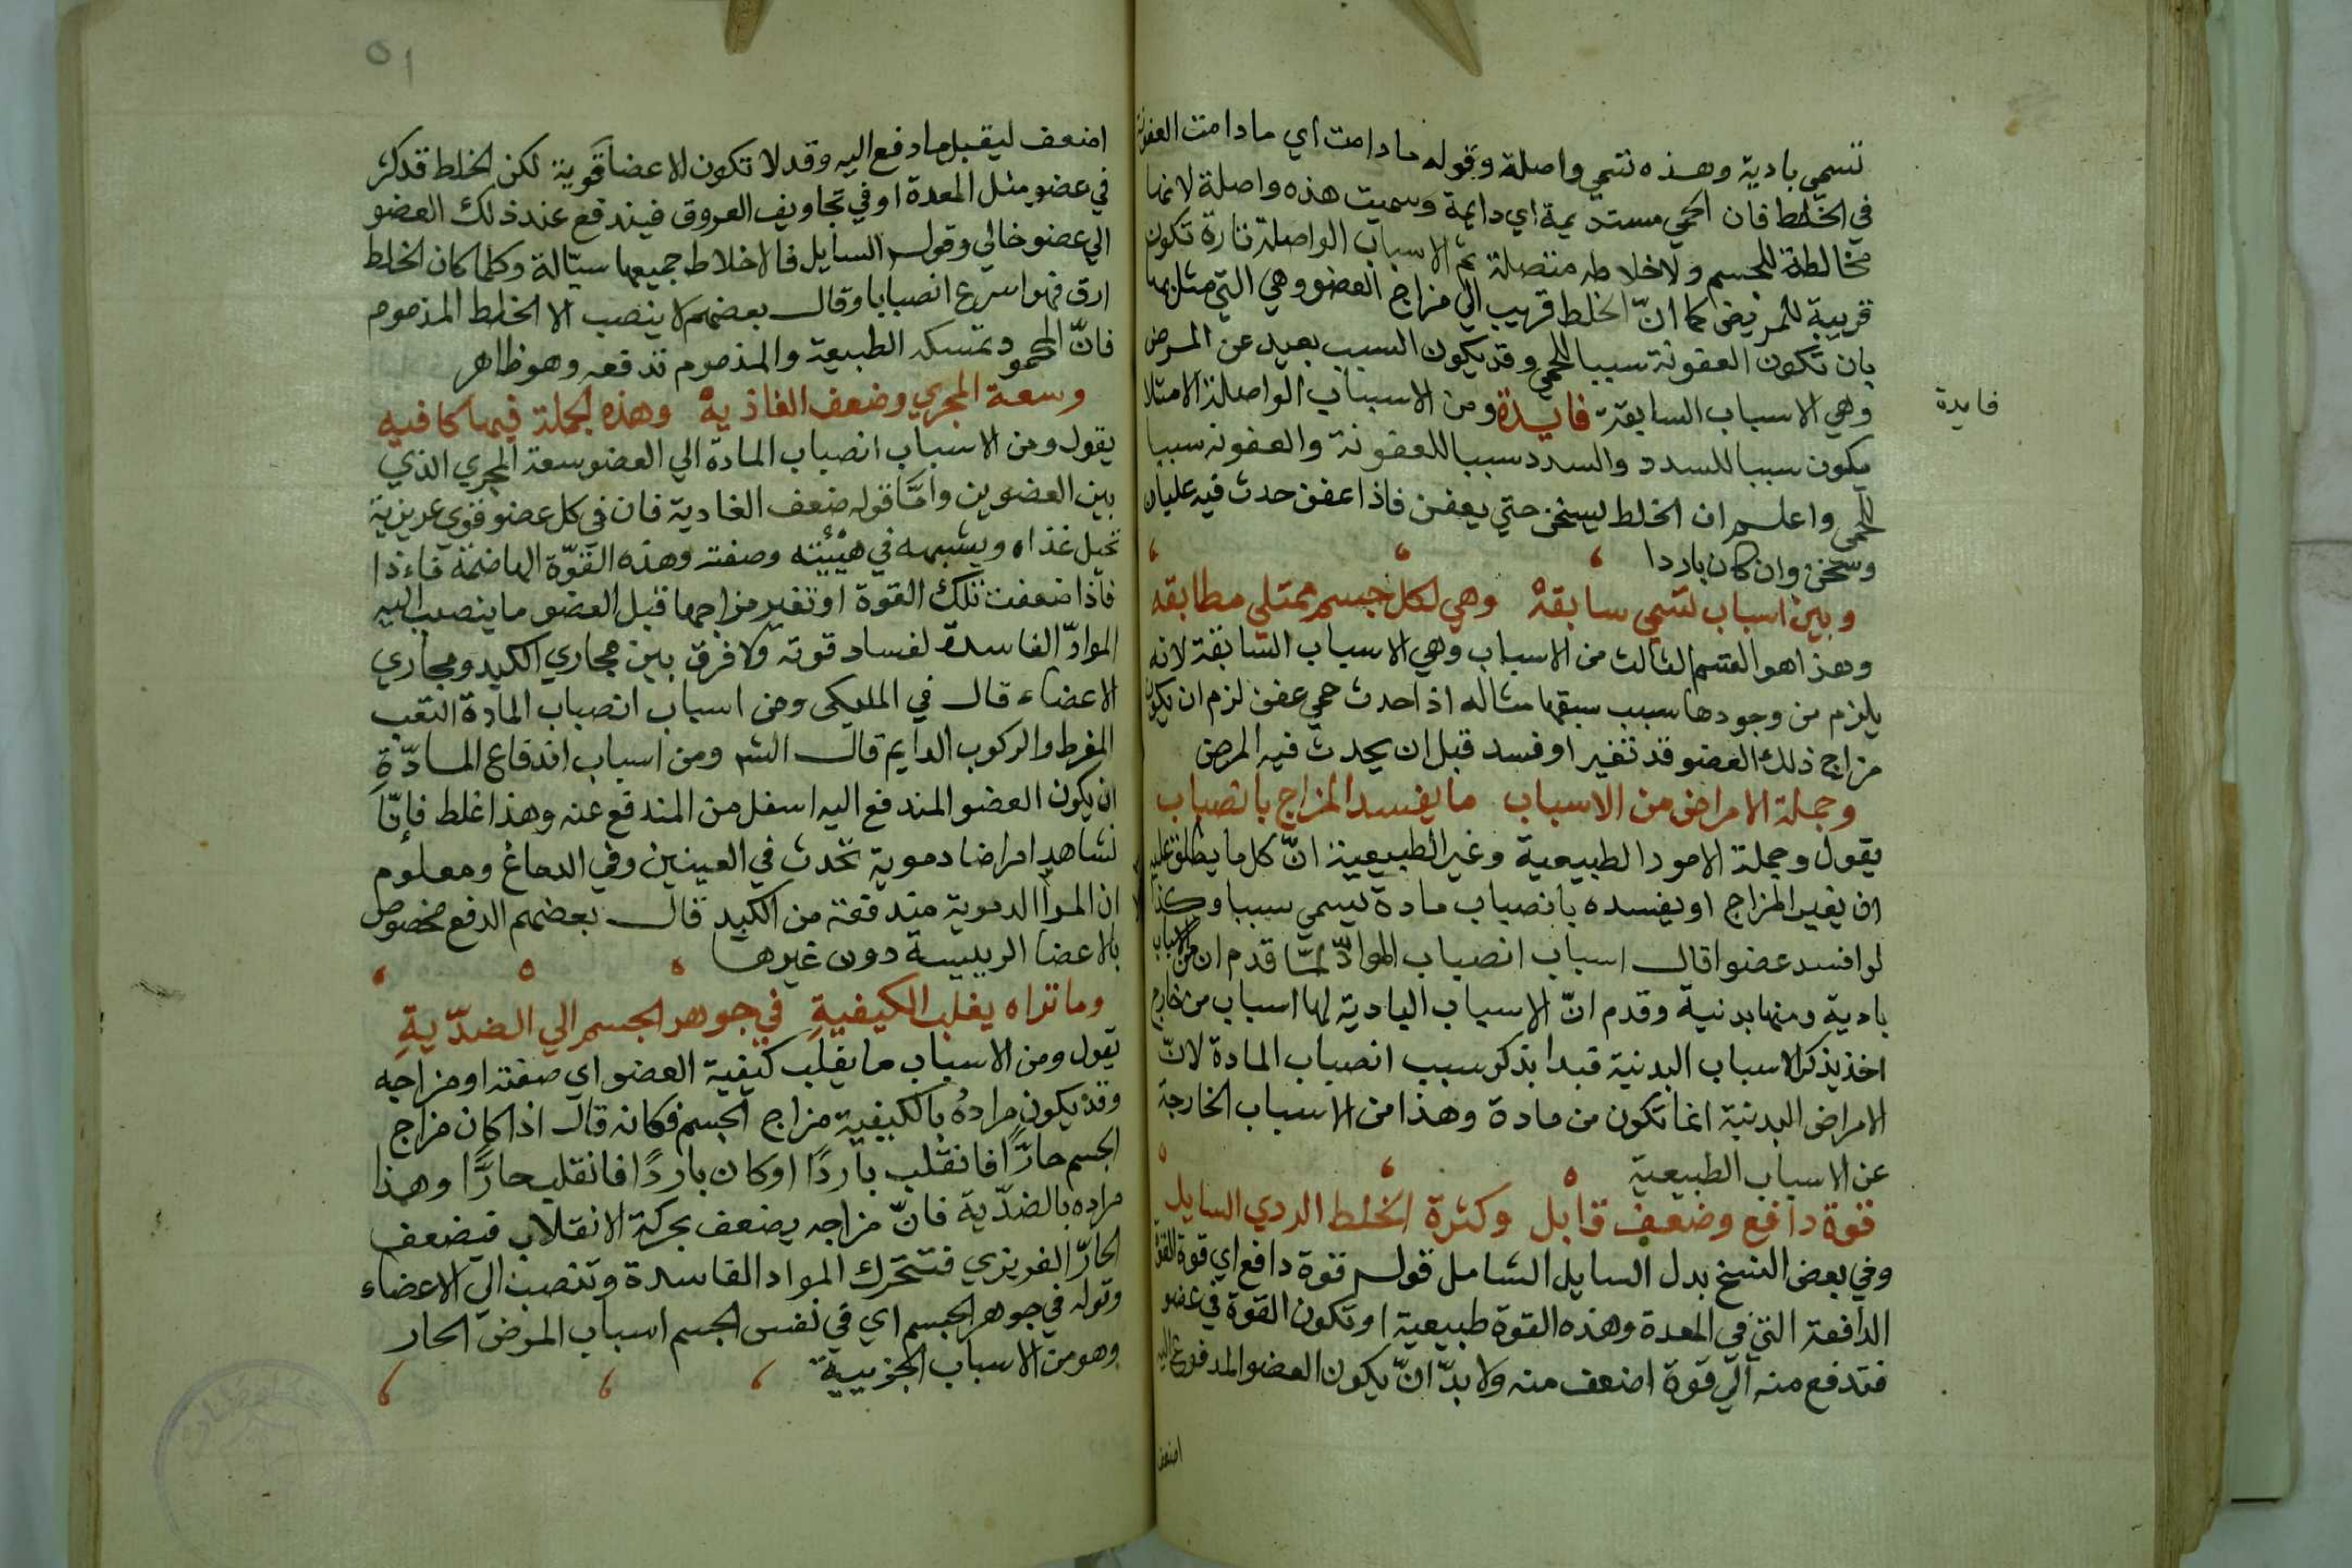 تسمي بادية وهذه تسمي واصلة وقوله مادامت اي مادامت العفونة
في الخلط فان الحمي مستديمة اي دايمة وسميت هذه واصلة لانها
مخالطة للجسم ولاخلاطه متصلة ثم الاسباب الواصلة تارة تكون
قريبة للمريض كما انّ الخلط قريب الي مزاج العضو وهي التي مثل بها
بان تكون العفونة سببا للحمي وقد يكون السبب بعيد عن المرض
وهي الاسباب السابقة فايدة ومن الاسباب الواصلة الامتلا
فايدة
يكون سببا للسدد والسدد سببا للعفونة والعفونه سببا
للحمي واعلم ان الخلط ليسخن حتي يعفن فاذا عفن حدث فيه غليان
وسخن وان كان باردا
وبين اسباب تسمي سابقة وهي لكل جسم ممتلي مطابقه
وهذا هو القسم الثالث من الاسباب وهي الاسباب السابقة لانه
يلزم من وجودها سبب سبقها مثاله اذا حدث حمي عفن لزم ان يكون
مزاج ذلك العضو قد تغير او فسد قبل ان يحدث فيه المرض
وجملة الامراض من الاسباب ما يفسد المزاج بانصباب
يقول وجملة الامور الطبيعية وغير الطبيعية انّ كل ما يطلق عليه
ان يغير المزاج او يفسده بانصباب مادة يسمي سببا وكذا
لو افسد عضوا قال اسباب انصباب الموادّ لمّا قدم ان من الاسباب
بادية ومنها بدنية وقدم انّ الاسباب البادية لها اسباب من خارج
اخذ يذكر الاسباب البدنية فبدا بذكر سبب انصباب المادة لانّ
الامراض البدنية انما تكون من مادة وهذا من الاسباب الخارجة
عن الاسباب الطبيعية
قوة دافع وضعف قابل وكثرة الخلط الردي السايل
وفي بعض النسخ بدل السايل الشامل قوله قوة دافع اي قوة القوة
الدافعة التي في المعدة وهذه القوة طبيعية او تكون القوة في عضو
فتدفع منه الي قوة اضعف منه ولا بدّ انّ يكون العضو المدفوع اليه
اضعف
٥١
اضعف ليقبل ما دفع اليه وقد لا تكون الاعضا قوية لكن الخلط قد كثر
في عضو مثل المعدة او في تجاويف العروق فيندفع عند ذلك العضو
الي عضو خالي وقول السايل فالاخلاط جميعها سيّالة وكلما كان الخلط
ارق فهو اسرع انصبابا وقال بعضهم لا ينصب الا الخلط المذموم
فانّ المحمود تمسكه الطبيعة والمذموم تدفعه وهو ظاهر
وسعة المجري وضعف الغاذية وهذه الجملة فيها كافيه
يقول ومن الاسباب انصباب المادة الي العضو سعة المجري الذي
بين العضوين وامّا قوله ضعف الغادية فان في كل عضو قوي غريزية
تحيل غذاه ويشبهه في هيئته وصفته وهذه القوّة الهاضمة فاءذا
فاذا ضعفت تلك القوة او تغير مزاجها قبل العضو ما ينصب اليه
الموادّ الفاسدة لفساد قوته ولا فرق بين مجاري الكبد ومجاري
الاعضاء قال في المليكي ومن اسباب انصباب المادة التعب
المفرط والركوب الدايم قال الشم ومن اسباب اندفاع المادّة
ان يكون العضو المندفع اليه اسفل من المندفع عنه وهذا غلط فإنّا
نشاهد امراضا دموية تحدث في العينين وفي الدماغ ومعلوم
ان المرا الدموية مندفعة من الكبد قال بعضهم الدفع مخصوص
بالاعضا الرييسة دون غيرها
وما تراه يغلب الكيفية في جوهر الجسم الي الضدّية
يقول ومن الاسباب ما يغلب كيفية العضو اي صفته او مزاجه
وقد يكون مرادهُ بالكيفية مزاج الجسم فكانه قال اذا كان مزاج
الجسم حارًّا فانقلب باردًا او كان باردًا فانقلب حارًّا وهذا
مراده بالضدّية فانّ مزاجه يضعف بحركة الانقلاب فيضعف
الحارّ الغريزي فتتحرك المواد الفاسدة وتنصب الي الاعضاء
وقوله في جوهر الجسم اي في نفس الجسم اسباب المرض الحار
وهو من الاسباب الجزييية